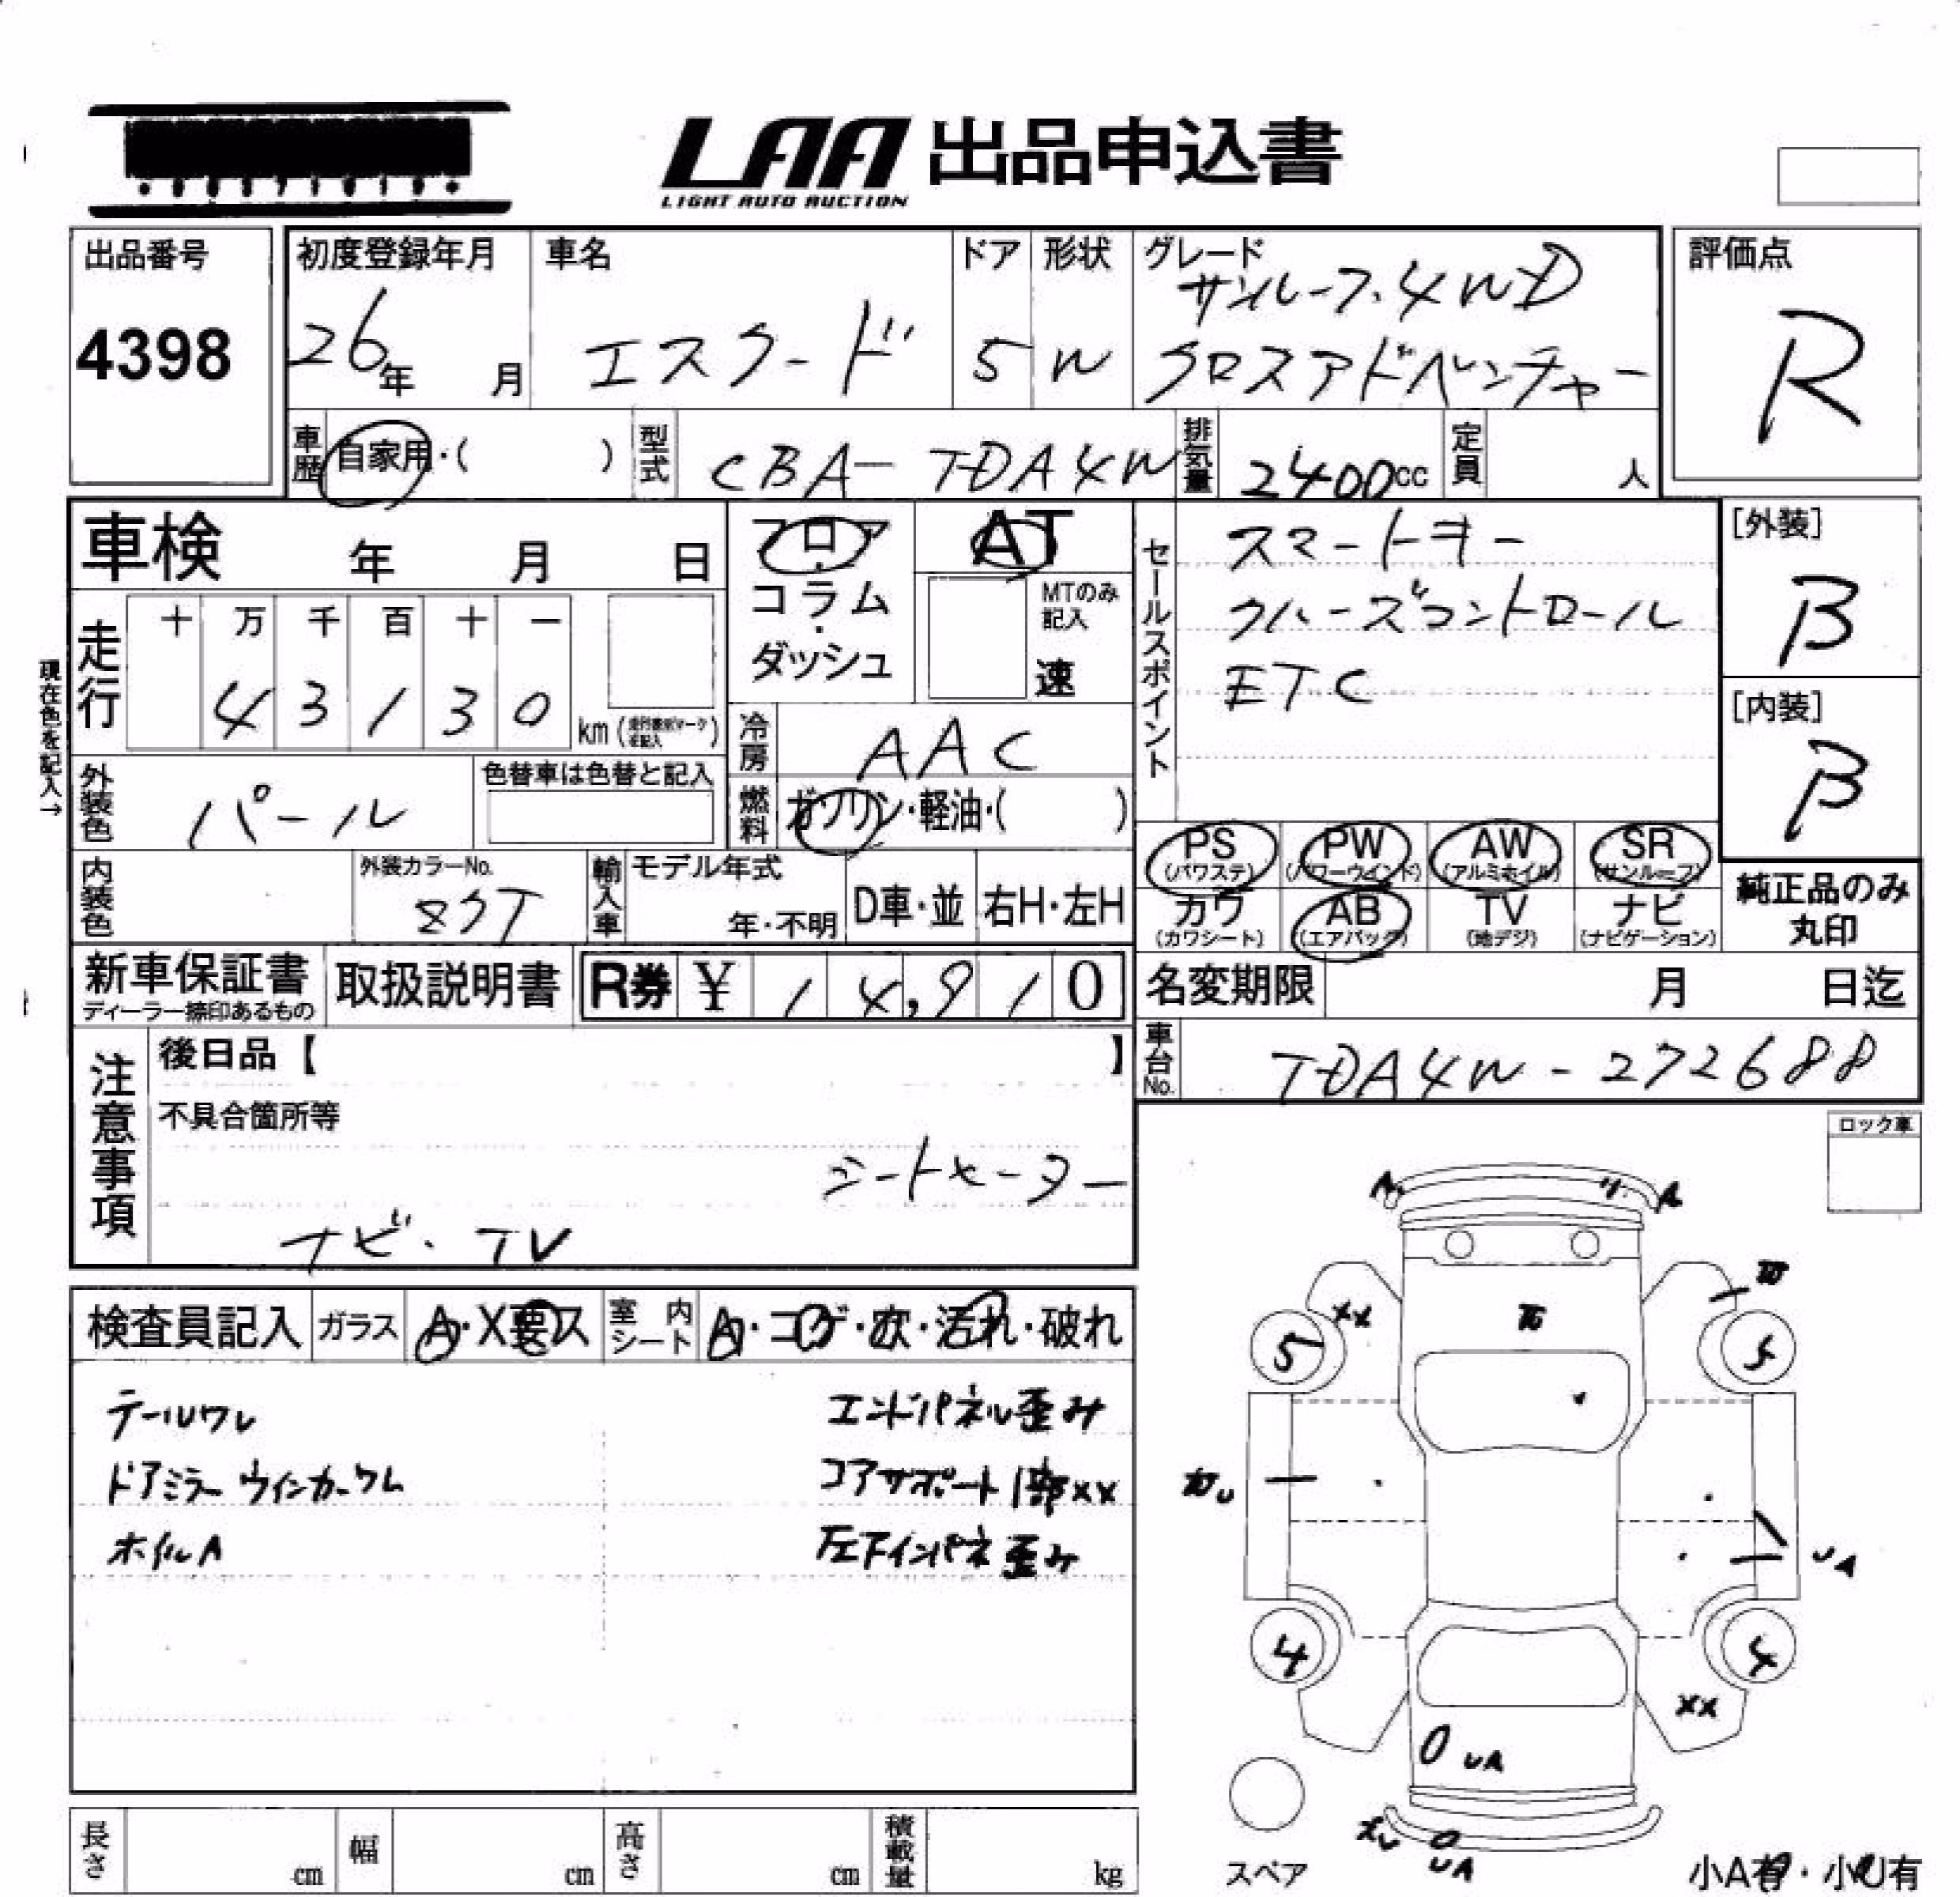 LAA 出品申込書
LIGHT AUTO AUCTION
出品番号
4398
初度登録年月
26年 月
車名
エスクード
ドア
5
形状
W
グレード
サンルーフ.4WD
クロスアドベンチャー
評価点
R
車歴
自家用・( )
型式
CBA-TDA4W
排気量
2400cc
定員
人
車検 年 月 日
フロア
・
コラム
・
ダッシュ
AT
MTのみ
記入
速
セールスポイント
スマートキー
クルーズコントロール
ETC
[外装]
B
[内装]
B
現在色を記入→
走行
十 万 千 百 十 一
4 3 1 3 0
km
冷房
AAC
外装色
パール
色替車は色替と記入
燃料
ガソリン・軽油・( )
PS
(パワステ)
PW
(パワーウインド)
AW
(アルミホイル)
SR
(サンルーフ)
カワ
(カワシート)
AB
(エアバッグ)
TV
(地デジ)
ナビ
(ナビゲーション)
純正品のみ
丸印
内装色
外装カラーNo.
ZQT
輸入車
モデル年式
年・不明
D車・並
右H・左H
新車保証書
ディーラー捺印あるもの
取扱説明書
R券 ¥ 14,910
名変期限 月 日迄
車台No.
TDA4W-272688
注意事項
後日品【 】
不具合箇所等
シートヒーター
ナビ・TV
ロック車
検査員記入
ガラス
A・X要ス
室内シート
A・コゲ・穴・汚れ・破れ
テールワレ
エンドパネル歪み
ドアミラーウインカーワレ
コアサポート1部XX
ホイルA
左下インパネ歪み
A
XX
5
5
U
UA
4
4
XX
UA
UA
スペア
小A有・小U有
長さ cm
幅 cm
高さ cm
積載量 kg